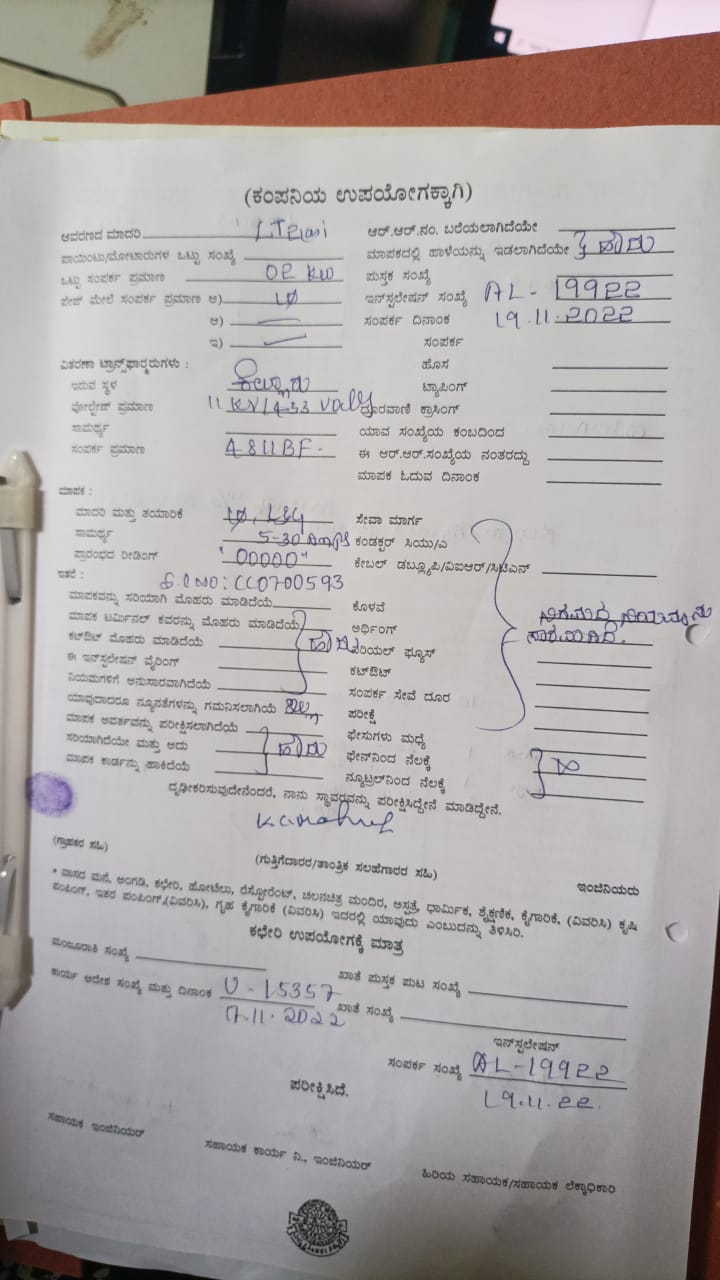 (ಕಂಪನಿಯ ಉಪಯೋಗಕ್ಕಾಗಿ)
ಆವರಣದ ಮಾದರಿ
ಆರ್.ಆರ್.ನಂ. ಬರೆಯಲಾಗಿದೆಯೇ
ಪಾಯಿಂಟು/ಮೋಟಾರುಗಳ ಒಟ್ಟು ಸಂಖ್ಯೆ
ಮಾಪಕದಲ್ಲಿ ಹಾಳೆಯನ್ನು ಇಡಲಾಗಿದೆಯೇ ಹೌದು
ಒಟ್ಟು ಸಂಪರ್ಕ ಪ್ರಮಾಣ 02 KW
ಪುಸ್ತಕ ಸಂಖ್ಯೆ
ಪೇಜ್ ಮೇಲೆ ಸಂಪರ್ಕ ಪ್ರಮಾಣ ಅ) 1Ø
ಇನ್‌ಸ್ಟಲೇಷನ್ ಸಂಖ್ಯೆ AL - 19922
ಆ)
ಸಂಪರ್ಕ ದಿನಾಂಕ 19.11.2022
ಇ)
ಸಂಪರ್ಕ
ವಿತರಣಾ ಟ್ರಾನ್ಸ್‌ಫಾರ್ಮರುಗಳು :
ಹೊಸ
ಇರುವ ಸ್ಥಳ
ಟ್ಯಾಪಿಂಗ್
ವೋಲ್ಟೇಜ್ ಪ್ರಮಾಣ 11 KV/433 Volts
ದೂರವಾಣಿ ಕ್ರಾಸಿಂಗ್
ಸಾಮರ್ಥ್ಯ
ಯಾವ ಸಂಖ್ಯೆಯ ಕಂಬದಿಂದ
ಸಂಪರ್ಕ ಪ್ರಮಾಣ
ಈ ಆರ್.ಆರ್.ಸಂಖ್ಯೆಯ ನಂತರದ್ದು
ಮಾಪಕ ಓದುವ ದಿನಾಂಕ
ಮಾಪಕ :
ಮಾದರಿ ಮತ್ತು ತಯಾರಿಕೆ 1Ø, L&G
ಸೇವಾ ಮಾರ್ಗ
ಸಾಮರ್ಥ್ಯ 5-30
ಕಂಡಕ್ಟರ್ ಸಿಯು/ಎ
ಪ್ರಾರಂಭದ ರೀಡಿಂಗ್ "00000"
ಕೇಬಲ್ ಡಬ್ಲ್ಯೂಪಿ/ವಿಐಆರ್/ಸಿಟಿಎನ್
ಇತರೆ :
S.l NO: CC0700593
ಮಾಪಕವನ್ನು ಸರಿಯಾಗಿ ಮೊಹರು ಮಾಡಿದೆಯೆ
ಕೊಳವೆ
ಮಾಪಕ ಟರ್ಮಿನಲ್ ಕವರನ್ನು ಮೊಹರು ಮಾಡಿದೆಯೆ
ಅರ್ಥಿಂಗ್
ಕಟ್‌ಔಟ್ ಮೊಹರು ಮಾಡಿದೆಯೆ ಹೌದು
ಏರಿಯಲ್ ಫ್ಯೂಸ್
ಈ ಇನ್‌ಸ್ಟಲೇಷನ್ ವೈರಿಂಗ್
ಕಟ್‌ಔಟ್
ನಿಯಮಗಳಿಗೆ ಅನುಸಾರವಾಗಿದೆಯೆ
ಸಂಪರ್ಕ ಸೇವೆ ದೂರ
ಯಾವುದಾದರೂ ನ್ಯೂನತೆಗಳನ್ನು ಗಮನಿಸಲಾಗಿಯೆ ಇಲ್ಲ
ಪರೀಕ್ಷೆ
ಮಾಪಕ ಆವರ್ತವನ್ನು ಪರೀಕ್ಷಿಸಲಾಗಿದೆಯೆ
ಫೇಸುಗಳು ಮಧ್ಯೆ
ಸರಿಯಾಗಿದೆಯೇ ಮತ್ತು ಅದು ಹೌದು
ಫೇಸ್‌ನಿಂದ ನೆಲಕ್ಕೆ
ಮಾಪಕ ಕಾರ್ಡನ್ನು ಹಾಕಿದೆಯೆ
ನ್ಯೂಟ್ರಲ್‌ನಿಂದ ನೆಲಕ್ಕೆ
ದೃಢೀಕರಿಸುವುದೇನೆಂದರೆ, ನಾನು ಸ್ಥಾವರವನ್ನು ಪರೀಕ್ಷಿಸಿದ್ದೇನೆ ಮಾಡಿದ್ದೇನೆ.
(ಗ್ರಾಹಕರ ಸಹಿ)
(ಗುತ್ತಿಗೆದಾರರ/ತಾಂತ್ರಿಕ ಸಲಹೆಗಾರರ ಸಹಿ)
ಇಂಜಿನಿಯರು
* ವಾಸದ ಮನೆ, ಅಂಗಡಿ, ಕಛೇರಿ, ಹೋಟೆಲು, ರೆಸ್ಟೋರೆಂಟ್, ಚಲನಚಿತ್ರ ಮಂದಿರ, ಆಸ್ಪತ್ರೆ, ಧಾರ್ಮಿಕ, ಶೈಕ್ಷಣಿಕ, ಕೈಗಾರಿಕೆ, (ವಿವರಿಸಿ) ಕೃಷಿ
ಪಂಪಿಂಗ್, ಇತರ ಪಂಪಿಂಗ್,(ವಿವರಿಸಿ), ಗೃಹ ಕೈಗಾರಿಕೆ (ವಿವರಿಸಿ) ಇದರಲ್ಲಿ ಯಾವುದು ಎಂಬುದನ್ನು ತಿಳಿಸಿರಿ.
ಕಛೇರಿ ಉಪಯೋಗಕ್ಕೆ ಮಾತ್ರ
ಮಂಜೂರಾತಿ ಸಂಖ್ಯೆ
ಖಾತೆ ಪುಸ್ತಕ ಪುಟ ಸಂಖ್ಯೆ
ಕಾರ್ಯ ಆದೇಶ ಸಂಖ್ಯೆ ಮತ್ತು ದಿನಾಂಕ U - 15357
ಖಾತೆ ಸಂಖ್ಯೆ
17.11.2022
ಇನ್‌ಸ್ಟಲೇಷನ್
ಸಂಪರ್ಕ ಸಂಖ್ಯೆ AL-19922
ಪರೀಕ್ಷಿಸಿದೆ.
19.11.22.
ಸಹಾಯಕ ಇಂಜಿನಿಯರ್
ಸಹಾಯಕ ಕಾರ್ಯ ನಿ., ಇಂಜಿನಿಯರ್
ಹಿರಿಯ ಸಹಾಯಕ/ಸಹಾಯಕ ಲೆಕ್ಕಾಧಿಕಾರಿ